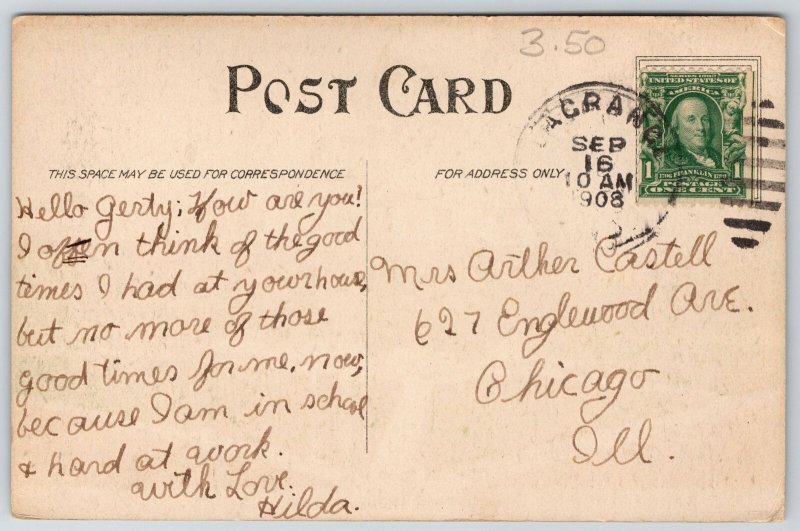 3.50
POST CARD
LAGRANGE
SEP
16
10 AM
1908
SERIES 1902
UNITED STATES OF
AMERICA
1706 FRANKLIN 1790
1 POSTAGE 1
ONE CENT
THIS SPACE MAY BE USED FOR CORRESPONDENCE
FOR ADDRESS ONLY
Hello Gerty; How are you!
I often think of the good
times I had at your house,
but no more of those
good times for me, now,
because I am in school
& hard at work.
with Love.
Hilda.
Mrs Arther Castell
627 Englewood Ave.
Chicago
Ill.